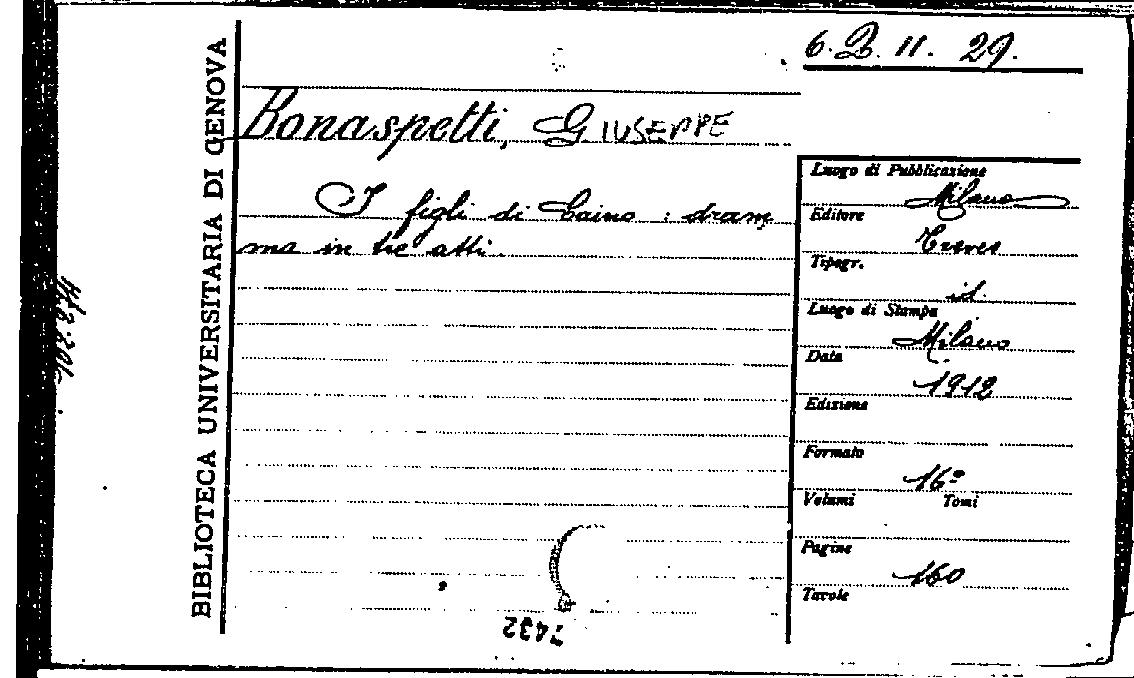 6. B. 11. 29.
BIBLIOTECA UNIVERSITARIA DI GENOVA
Bonaspetti, GIUSEPPE
I figli di Caino : dram
ma in tre atti.
Luogo di Pubblicazione
Milano
Editore
Treves
Tipogr.
id.
Luogo di Stampa
Milano
Data
1912
Edizione
Formato
16º
Volumi Tomi
Pagine
160
Tavole
7432